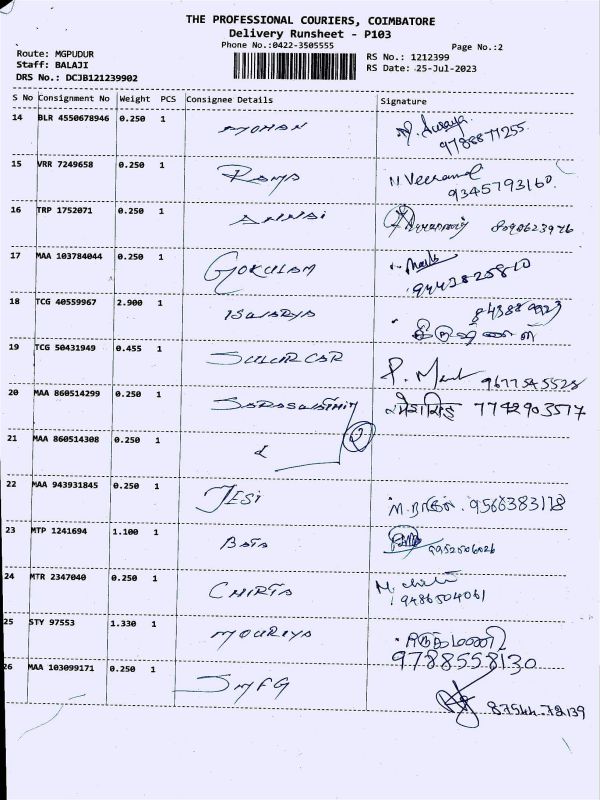 THE PROFESSIONAL COURIERS, COIMBATORE
Delivery Runsheet - P103
Phone No.:0422-3505555 Page No.:2
Route: MGPUDUR
Staff: BALAJI
DRS No.: DCJB121239902
RS No.: 1212399
RS Date: 25-Jul-2023
S No Consignment No Weight PCS Consignee Details Signature
14 BLR 4550678946 0.250 1 MOHAN
9788877255
15 VRR 7249658 0.250 1 RAMA
9345793160
16 TRP 1752071 0.250 1 ANNAI 8090623976
17 MAA 103784044 0.250 1 GOKULAM
9442825810
18 TCG 40559967 2.900 1 ISWARYA
19 TCG 50431949 0.455 1 SULURCAR
9677545528
20 MAA 860514299 0.250 1 7742903577
21 MAA 860514308 0.250 1
22 MAA 943931845 0.250 1 JESI 9566383178
23 MTP 1241694 1.100 1 BATA 9952506026
24 MTR 2347040 0.250 1 CHIRTA
9486504061
25 STY 97553 1.330 1 MOURIYA
9788558130
26 MAA 103099171 0.250 1 SMFG
87544 72139